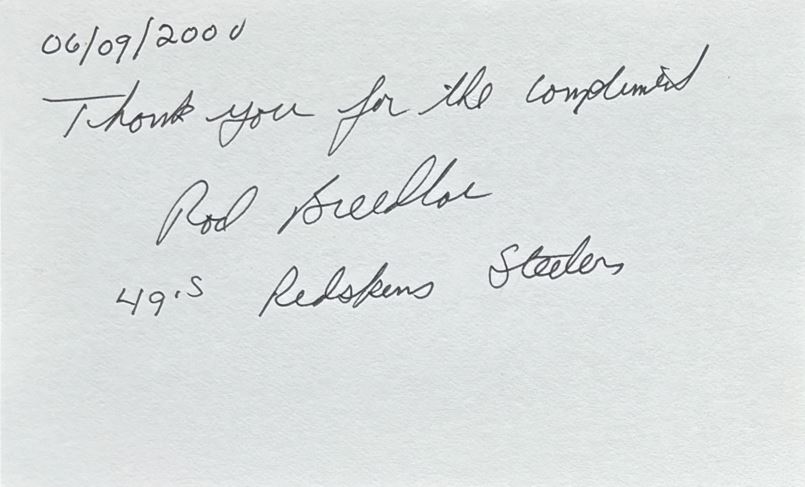 06/09/2000
Thank you for the compliment
Rod Breedlove
49'S Redskins Steelers